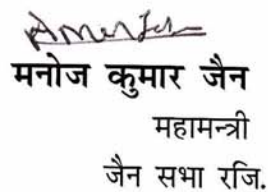 मनोज कुमार जैन
महामन्त्री
जैन सभा रजि.